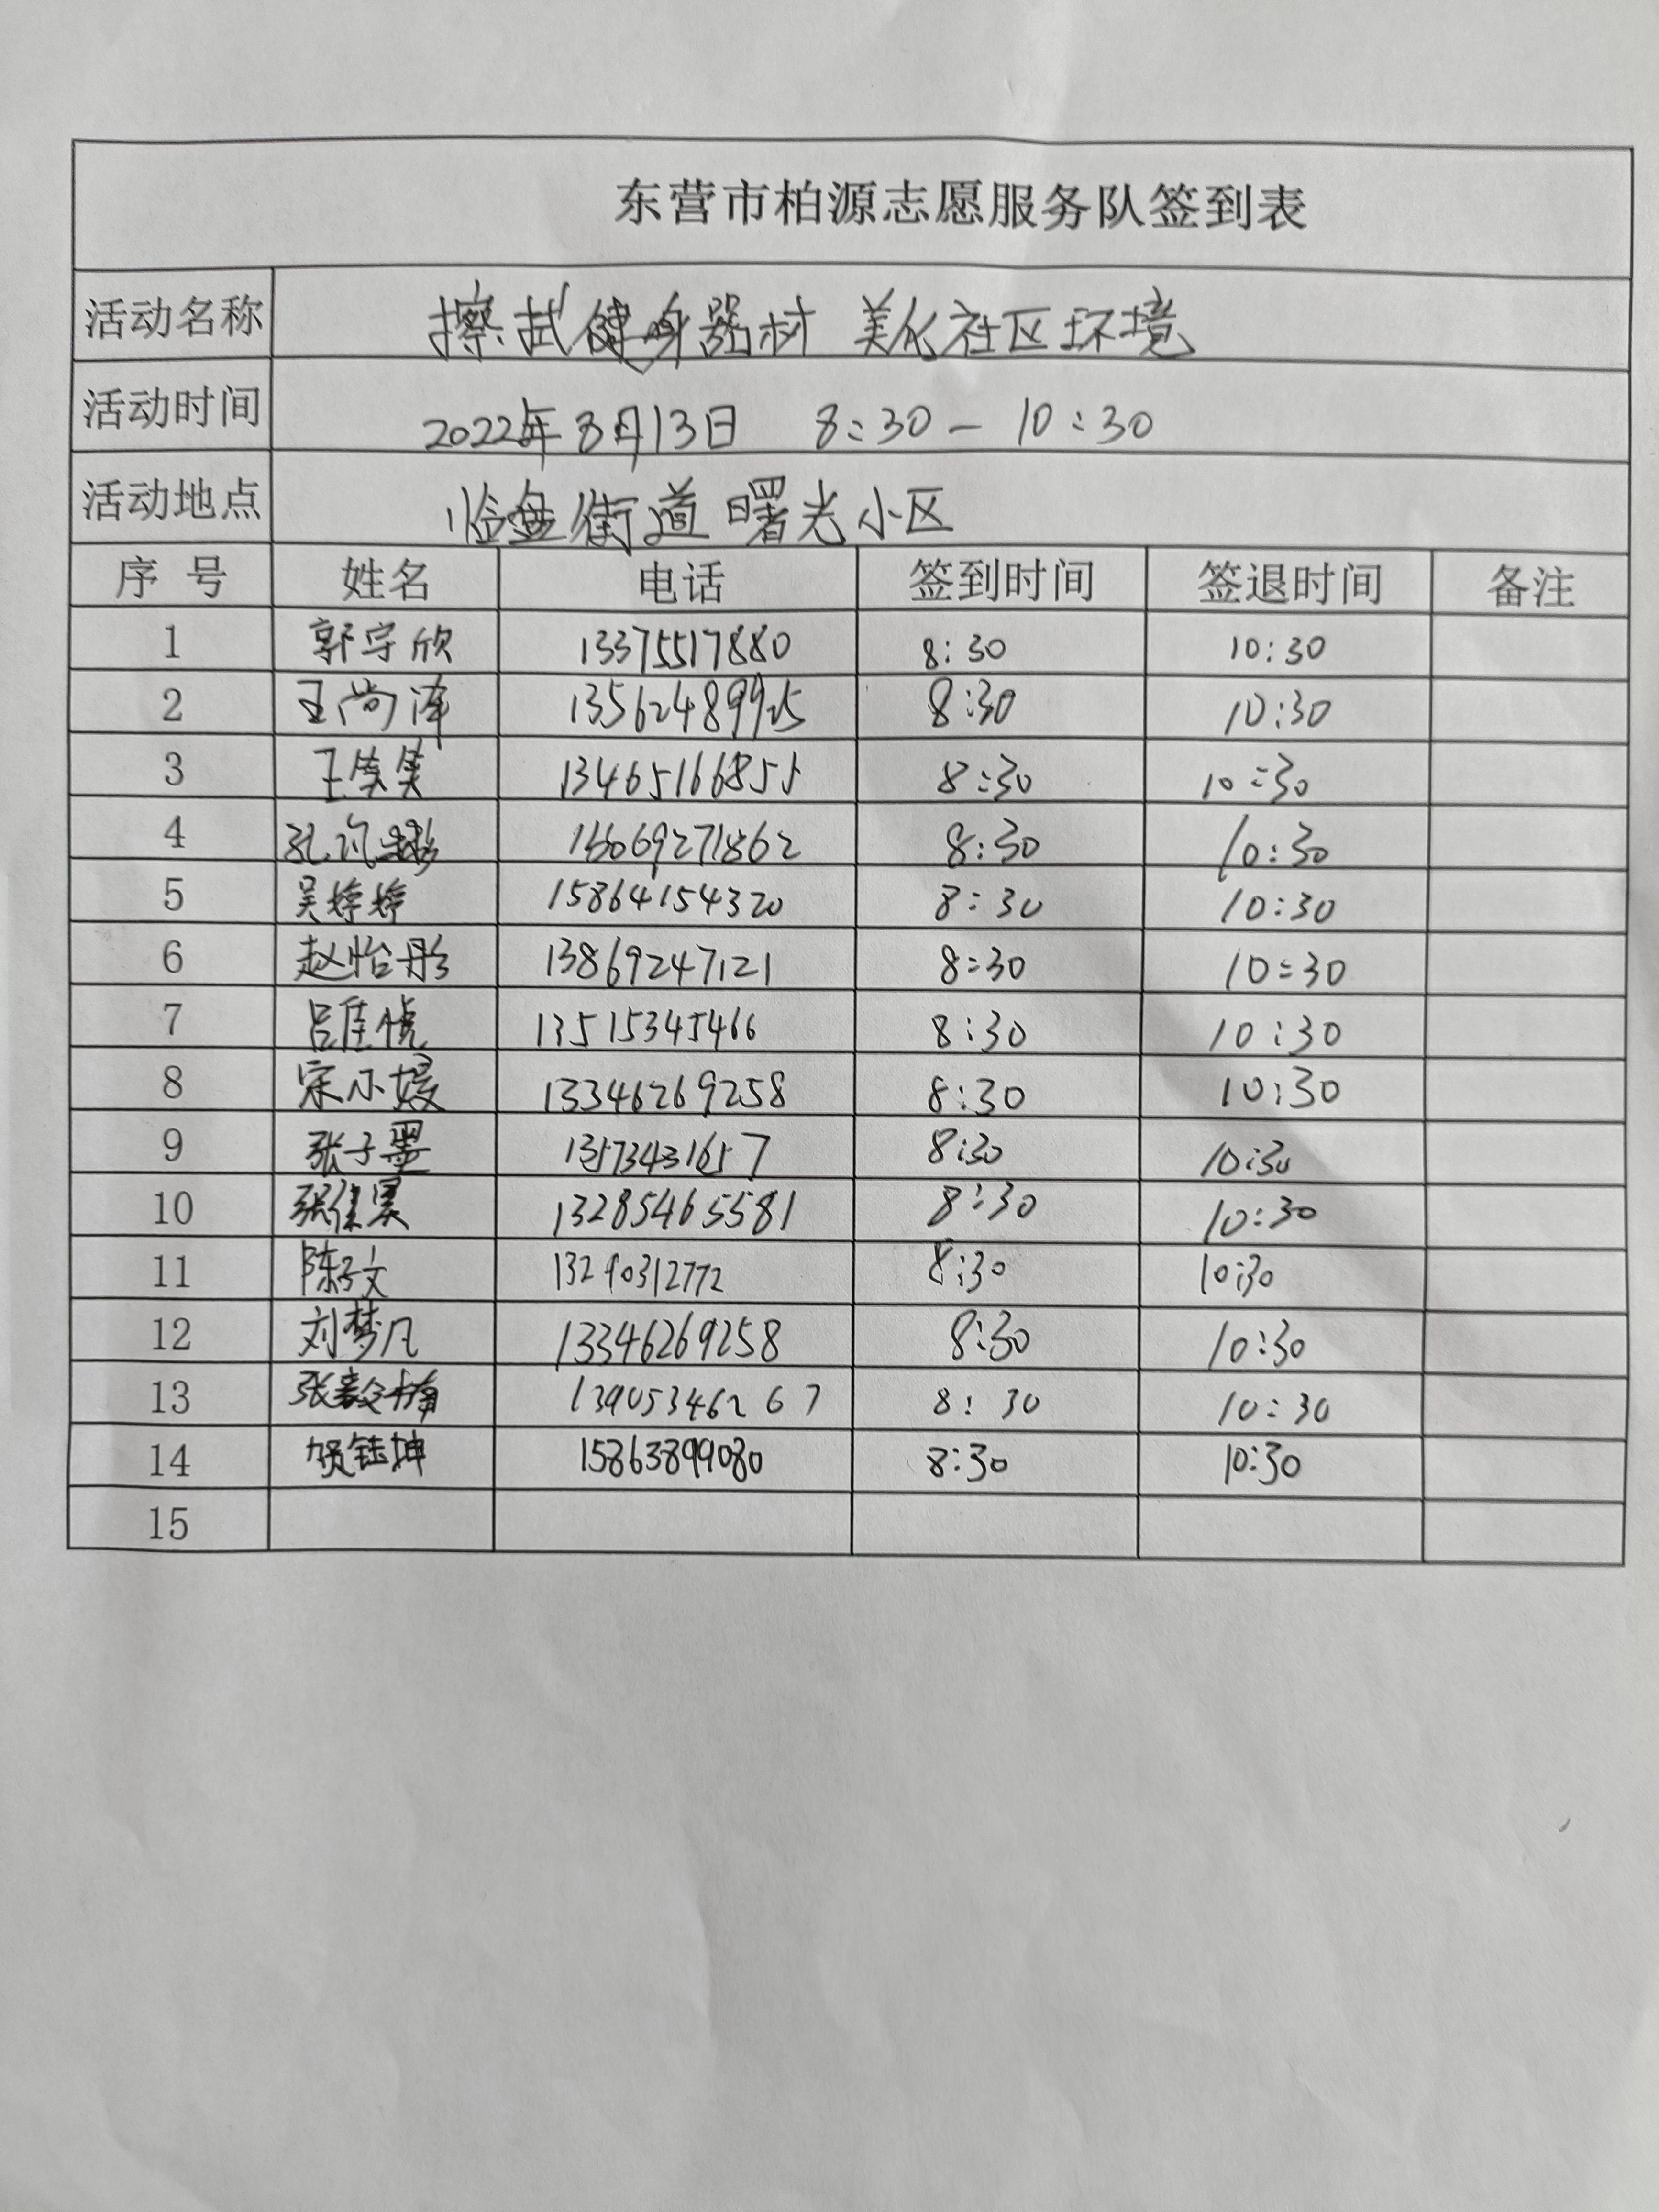 东营市柏源志愿服务队签到表
活动名称 擦拭健身器材 美化社区环境
活动时间 2022年8月13日 8:30-10:30
活动地点 临盘街道曙光小区
序号 姓名 电话 签到时间 签退时间 备注
1 郭宇欣 13375517880 8:30 10:30
2 王尚泽 13562489925 8:30 10:30
3 王笑笑 13465166855 8:30 10:30
4 8:30 10:30
5 吴婷婷 15864154320 8:30 10:30
6 赵怡彤 13869247121 8:30 10:30
7 吕佳 13515345466 8:30 10:30
8 宋小媛 13346269258 8:30 10:30
9 张子墨 13573431657 8:30 10:30
10 13285465581 8:30 10:30
11 陈子文 8:30 10:30
12 刘梦凡 13346269258 8:30 10:30
13 13905346267 8:30 10:30
14 贺钰坤 15863899080 8:30 10:30
15